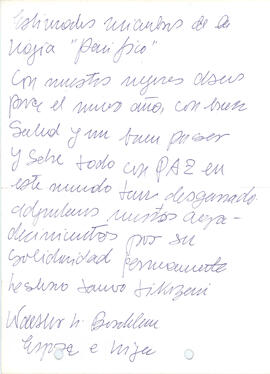 Estimados miembros de la
logia "Pacifico"
Con nuestros mejores deseos
para el nuevo año, con buen
Salud y un buen pasar
y sobre todo con PAZ en
este mundo tan desgarrado
adjuntamos nuestros agra-
decimientos por su
solidaridad permanente
h.
Esposa e hija